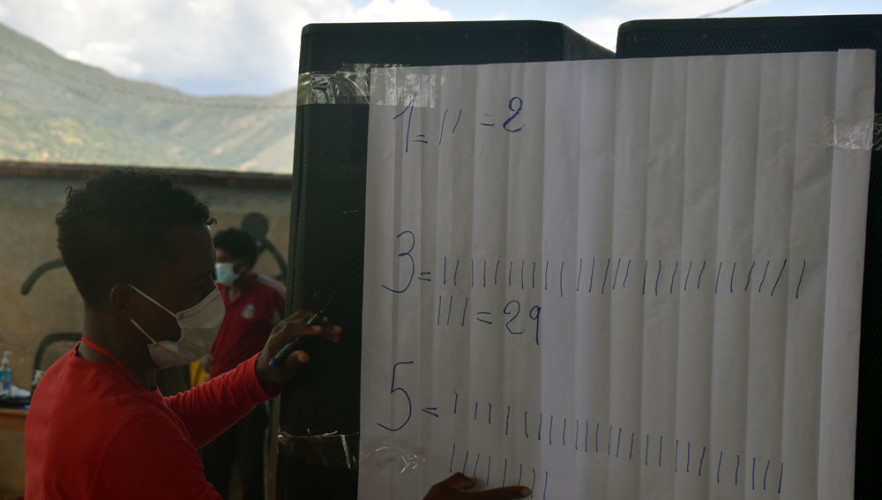 1= || =2
3= ||||||||||||||||||||||||||
||| =29
5= ||||||||||||||||||||||||
||||||||